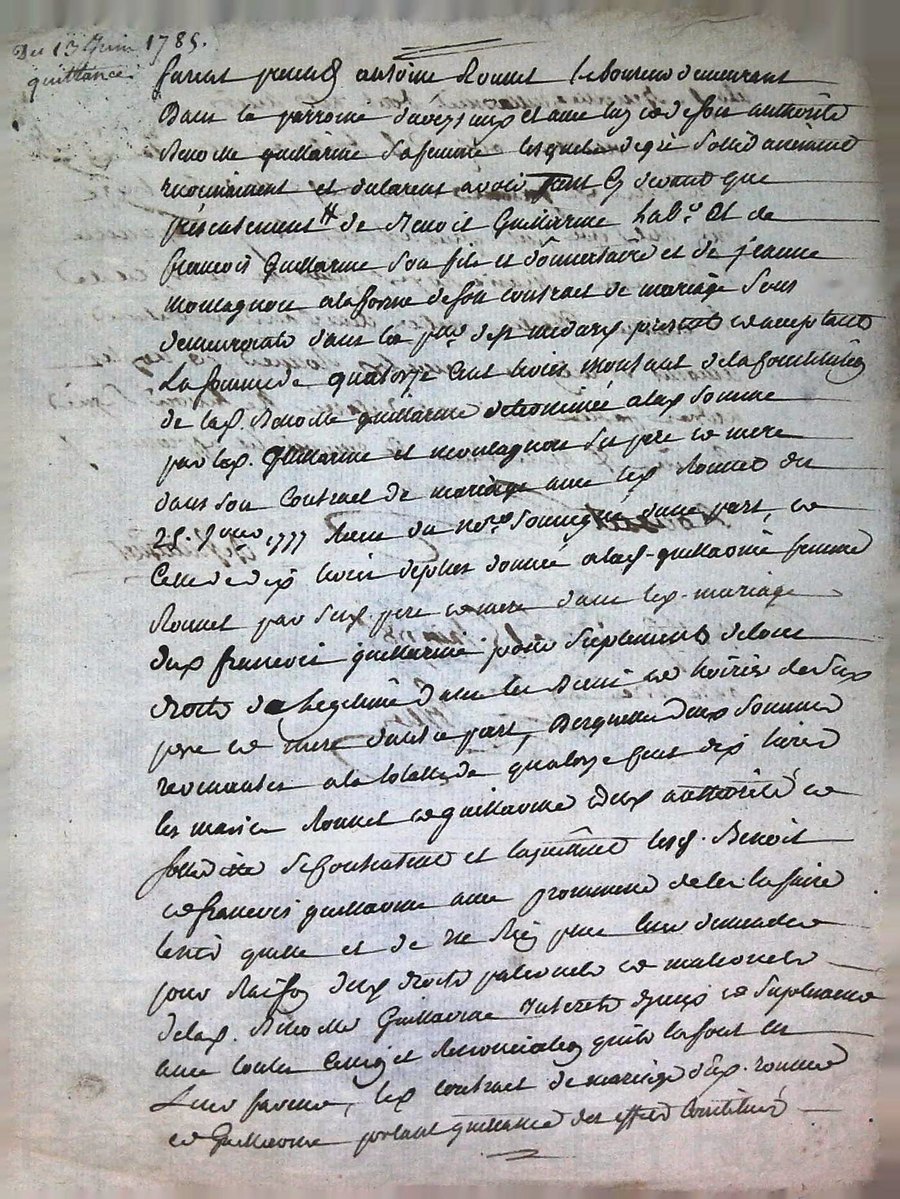 Du 13 Juin 1785.
quittance
furent presents antoine Ronnet laboureur demeurant
Dans la parroisse et avec luy et de son authorité
Benoitte guillarme sa femme lesquels de gré solidairement
reconnoissent et declarent avoir tant cy devant que
présentement de Benoit Guillarme lab.r et de
francois Guillarme son fils et donnataire et de jeanne
montagnon a la forme de son contract de mariage tous
demeurants dans la de st medard presents et acceptants
La somme de quatorze cent livres montant de la Constitution
de lad. Benoitte guillarme determinée a lad. somme
par lesd. Guillarme et montagnon ses pere et mere
dans son Contract de mariage avec led. Ronnet du
25. 1777 Recu du no.re soussigné d'une part, et
Celle de dix livres donné a lad. guillarme femme
Ronnet par sesd. pere et mere dans led. mariage
dud. francois guillarme pour suplement de tous
droits de legitime dans les Biens et hoiries de sesd.
pere et mere d'autre part, Desquelles deux sommes
revenantes a la totalle de quatorze cent dix livres
les mariés Ronnet et guillarme de lad. authorité et
sollidité se contentent et en quittent lesd. Benoit
et francois guillarme avec promesse de les en faire
tenir quitte et de ne Rien plus leur demander
pour Raison desd. droits paternels et maternels
de lad. Benoitte Guillarme Interets d'yceux et suplement
avec toutes et Renonciation quils en font en
leur faveur, led. contract de mariage desd. ronnet
et Guillarme portant quittance des effets Constitués